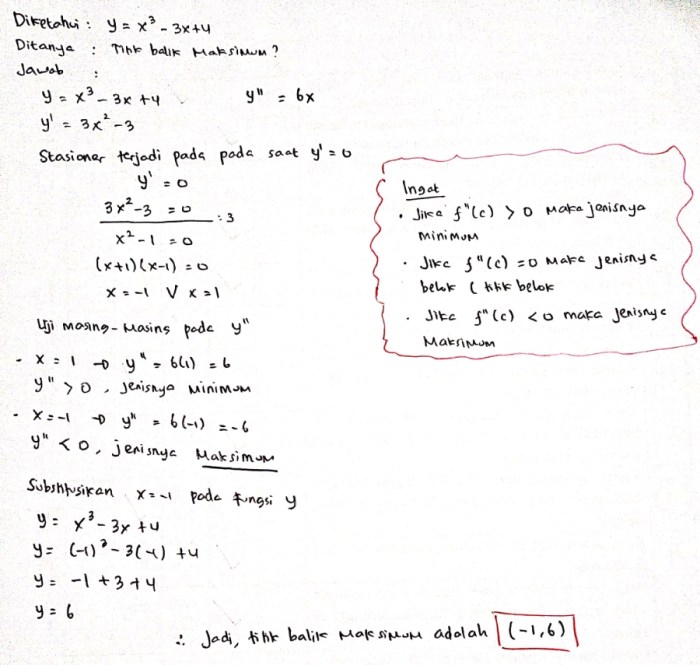 Diketahui : y = x³ - 3x+4
Ditanya : Titik balik Maksimum ?
Jawab :
y = x³ - 3x +4 y" = 6x
y' = 3x² - 3
Stasioner terjadi pada pada saat y' = 0
y' = 0
3x² - 3 = 0 : 3
x² - 1 = 0
(x+1)(x-1) = 0
x = -1 V x = 1
Uji masing-masing pada y"
- x = 1 → y" = 6(1) = 6
y" > 0 , jenisnya Minimum
- x = -1 → y" = 6(-1) = -6
y" < 0, jenisnya Maksimum
Substitusikan x = -1 pada fungsi y
y = x³ - 3x +4
y = (-1)³ - 3(-1) +4
y = -1 + 3 + 4
y = 6
∴ Jadi, titik balik Maksimum adalah (-1,6)
Ingat
• Jika f"(c) > 0 Maka jenisnya
Minimum
• Jika f"(c) = 0 Maka jenisnya
belok ( titik belok
• Jika f"(c) < 0 maka jenisnya
Maksimum